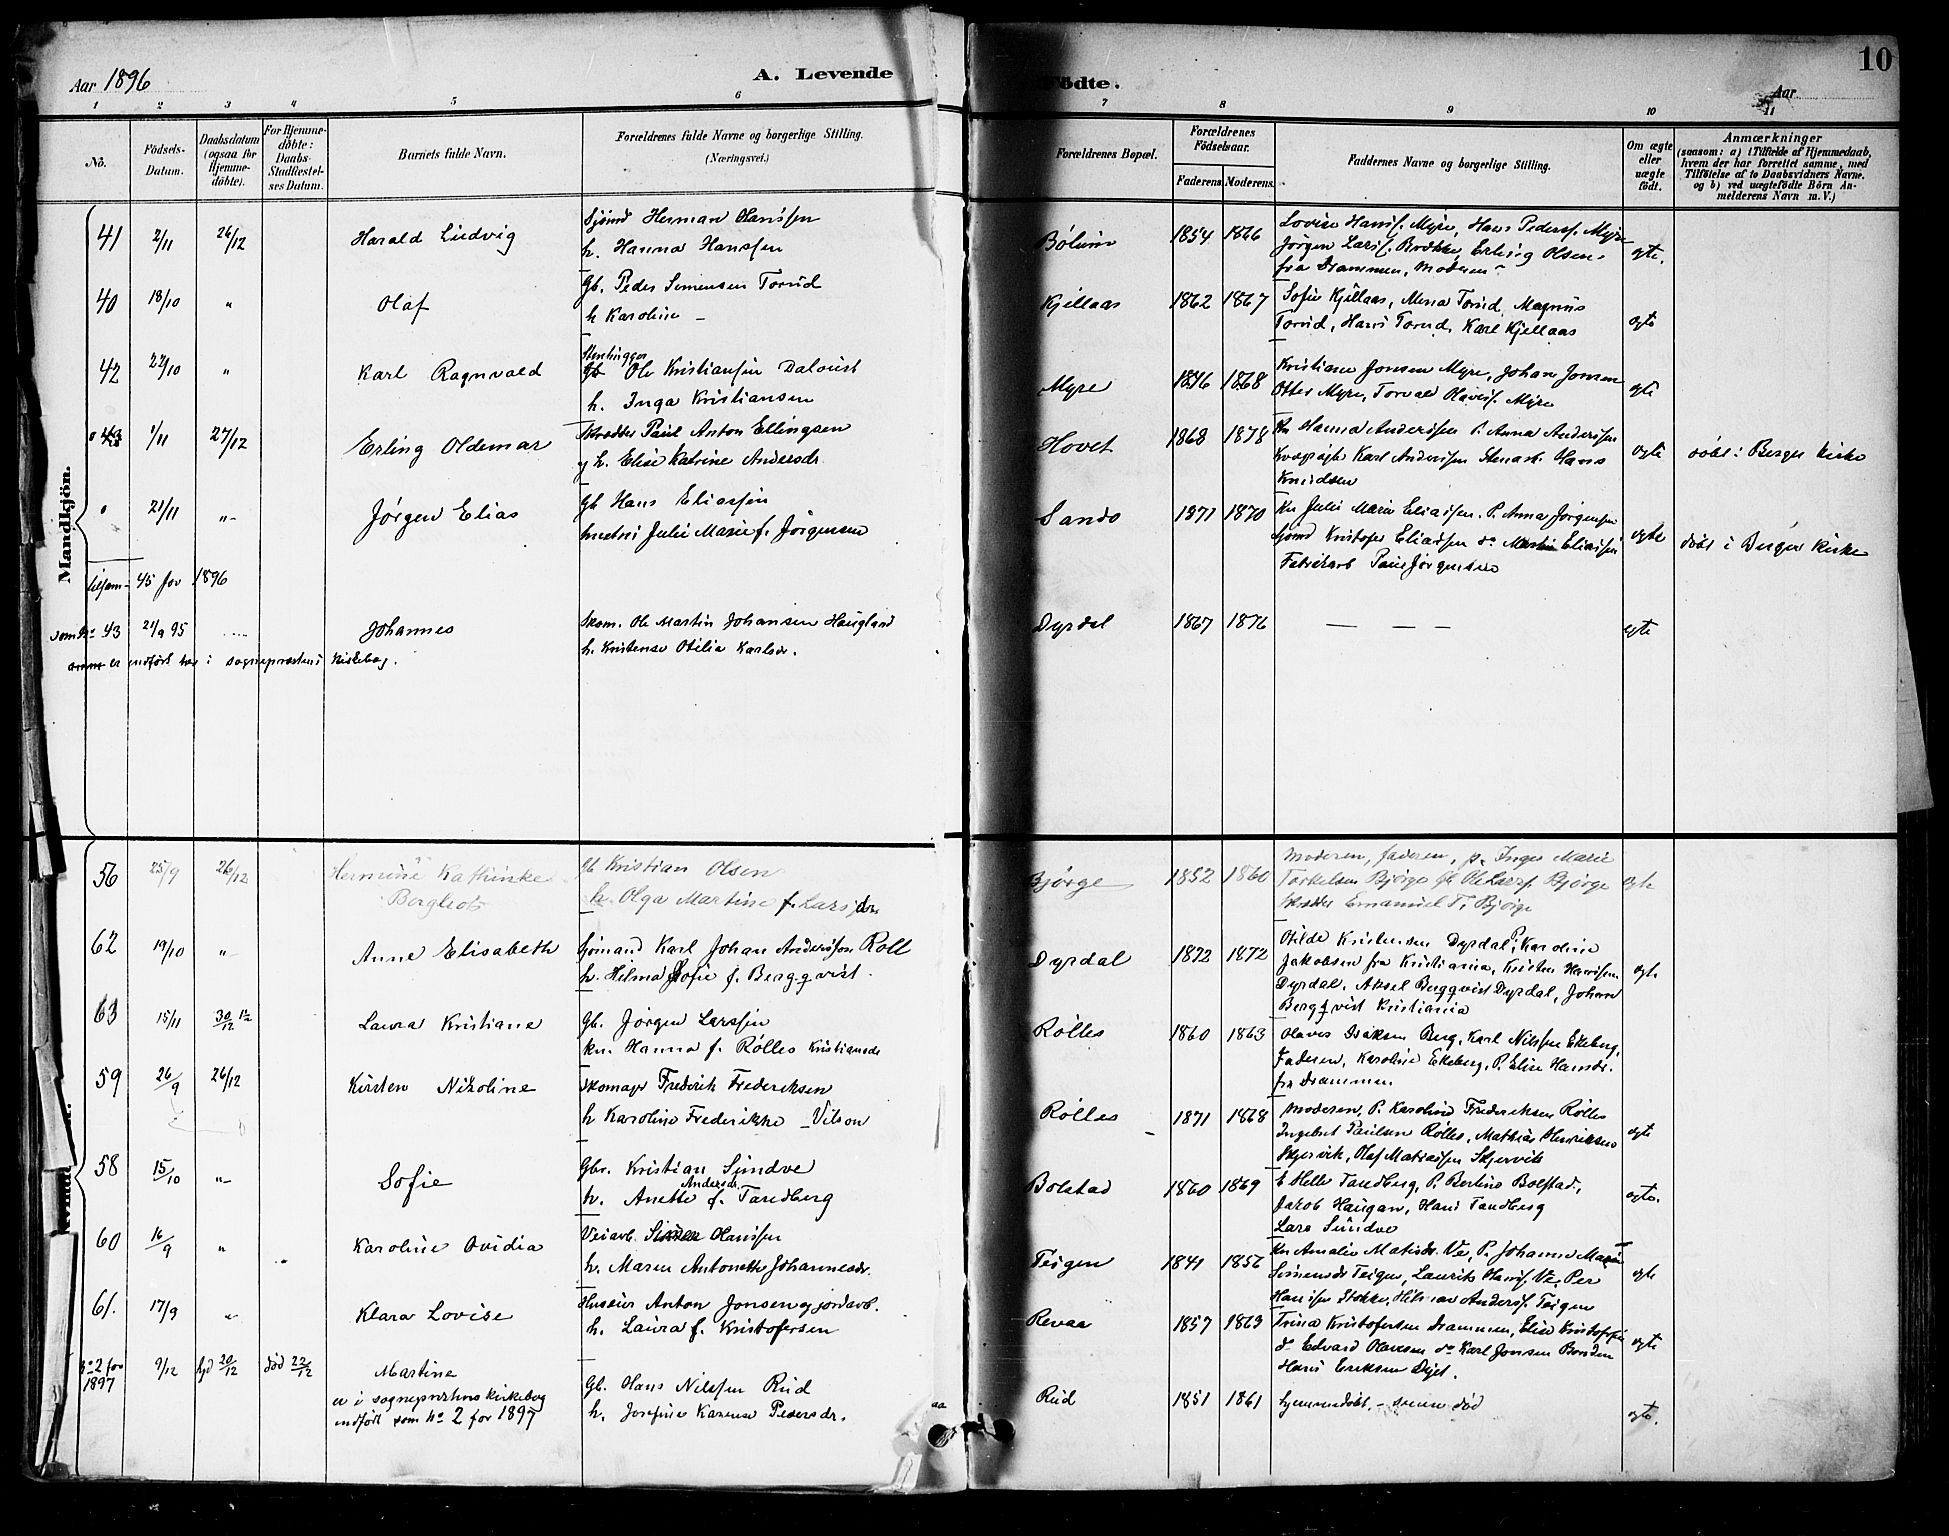 Aar 1896
A. Levende
Fødte.
10
Aar
1 2 3 4 5 6 7 8 9 10 11
No.
Fødsels-Datum.
Daabsdatum (ogsaa for Hjemme-døbte).
For Hjemme-døbte: Daabs-Stadfæstel-ses Datum.
Barnets fulde Navn.
Forældrenes fulde Navne og borgerlige Stilling. (Næringsvei.)
Forældrenes Bopæl.
Forældrenes Fødselsaar.
Faderens. Moderens.
Faddernes Navne og borgerlige Stilling.
Om ægte eller uægte født.
Anmærkninger
(saasom: a) i Tilfælde af Hjemmedaab,
hvem der har forrettet samme, med
Tilføielse af to Daabsvidners Navne,
og b) ved uægtefødte Børn An-
melderens Navn m. V.)
Mandkjøn.
41 2/11 26/12 Harald Ludvig
Sjømd Herman Hanssen
h. Hanna Hanssen
Bølum 1854 1866
Lovise Hansf. Myre, Hans Pederss. Myre
Jørgen Larsf. Brække, Erling Olsen
fra Drammen, Moderen
egte.
40 18/10 " Olaf
Gb. Peder Simensen Torud
h Karoline –
Kjellaas 1862 1867
Sofie Kjellaas, Mina Torud, Magnus
Torud, Hans Torud, Karl Kjellaas
egte
42 22/10 " Karl Ragnvald
Stenhugger
Gb Ole Kristiansen Dalquist
h. Inga Kristiansen
Myre 1876 1868
Kristiane Jonsen Myre, Johan Jonsen
Otter Myre, Torval Olavisf. Myre
egte
43 1/11 27/12 Erling Oldemar
Skrædder Paul Anton Ellingsen
h. Elise Katrine Andersdr
Hovet 1868 1878
Kn Hanna Anderssen P. Anna Anderssen
Karl Anderssen Hans
Knudsen
egte
døbt i Berger Kirke
21/11 " Jørgen Elias
Gb Hans Eliassen
hustru Julie Marie f. Jørgensen
Sando 1871 1870
Kn Julie Marie Eliassen. P. Anna Jørgensen
Sjømd Kristofer Eliassen do Martin Eliassen
Fabrikarb Paul Jørgensen
egte
døbt i Berger Kirke
tilsam- 45 for 1896
som No 43 21/9 95 .... Johannes
Skom. Ole Martin Johansen Haugland
h. Kristense Otilia Karlsdr.
Dyrdal 1867 1876 – – – egte
er indført her i sognepræstens Kirkebog.
56 25/9 26/12 Hermine Kathinke
Bergliot
Gb Kristian Olsen
h. Olga Martine f. Larsdr.
Bjørge 1852 1860
Moderen, faderen, p. Inger Marie
Torkelsen Bjørge gb. Ole Larss. Bjørge
Skrædder Emanuel T. Bjørge
egte
62 19/10 " Anne Elisabeth
Sjømand Karl Johan Anderssen Roll
h. Hilma Sofie f. Bergqvist.
Dyrdal 1872 1872
Otilde Kristensen Dyrdal, P. Karoline
Jakobsen fra Kristiania, Kristen Hansen
Dyrdal, Aksel Bergqvist Dyrdal, Johan
Bergqvist Kristiania
egte
63 15/11 30/12 Laura Kristiane
Gb. Jørgen Larssen
kn. Hanna f. Rølles Kristiansdr
Rølles 1860 1863
Olaves Isaksen Berg, Karl Nilssen Ekeberg,
Faderen, Karoline Ekeberg, P. Elise Hansdr.
fra Drammen.
59 26/9 26/12 Kirsten Nikoline
Skomager Frederik Frederiksen
h Karoline Frederikke – Vilson
Rølles 1871 1868
Moderen, P. Karoline Frederiksen Rølles
Ingebret Paulsen Rølles, Mathias Henriksen
Skjervik, Olaf Matiassen Skjervik
egte
58 15/10 " Sofie
Gbr. Kristian Sundve
h. Anette Andersdr. f. Tandberg
Bolstad 1860 1869
E Helle Tandberg, P. Bertine Bolstad,
Jakob Haugan, Hans Tandberg
Lars Sundve
egte.
60 16/9 " Karoline Ovidia
Veiarb. Simen Hanssen
h. Maren Antonette Johannesdr.
Teigen 1841 1852
Kn Amalie Matisdr. Ve, P. Johanne Marie
Simensdr Teigen, Laurits Hansf. Ve, Per
Hanssen Stokke, Hilmar Anderss. Teigen
egte
61. 17/9 " Klara Lovise
Huseier Anton Jonsen og jordarb.
h. Laura f. Kristofersen
Revaa 1857 1863
Trina Kristofersen Drammen, Elise Kristoffersen
do Edvard Olavesen do Karl Jonsen Bonden
Hans Eriksen
egte
No 2 for 1897 9/12 hjd 20/12 død 22/12 Martine
er i sognepræstens kirkebog
indført som No 2 for 1897
Gb. Hans Nilssen Rud
h. Josefine Karense Pedersdr.
Rud 1851 1861 hjemmedøbt. – død egte.